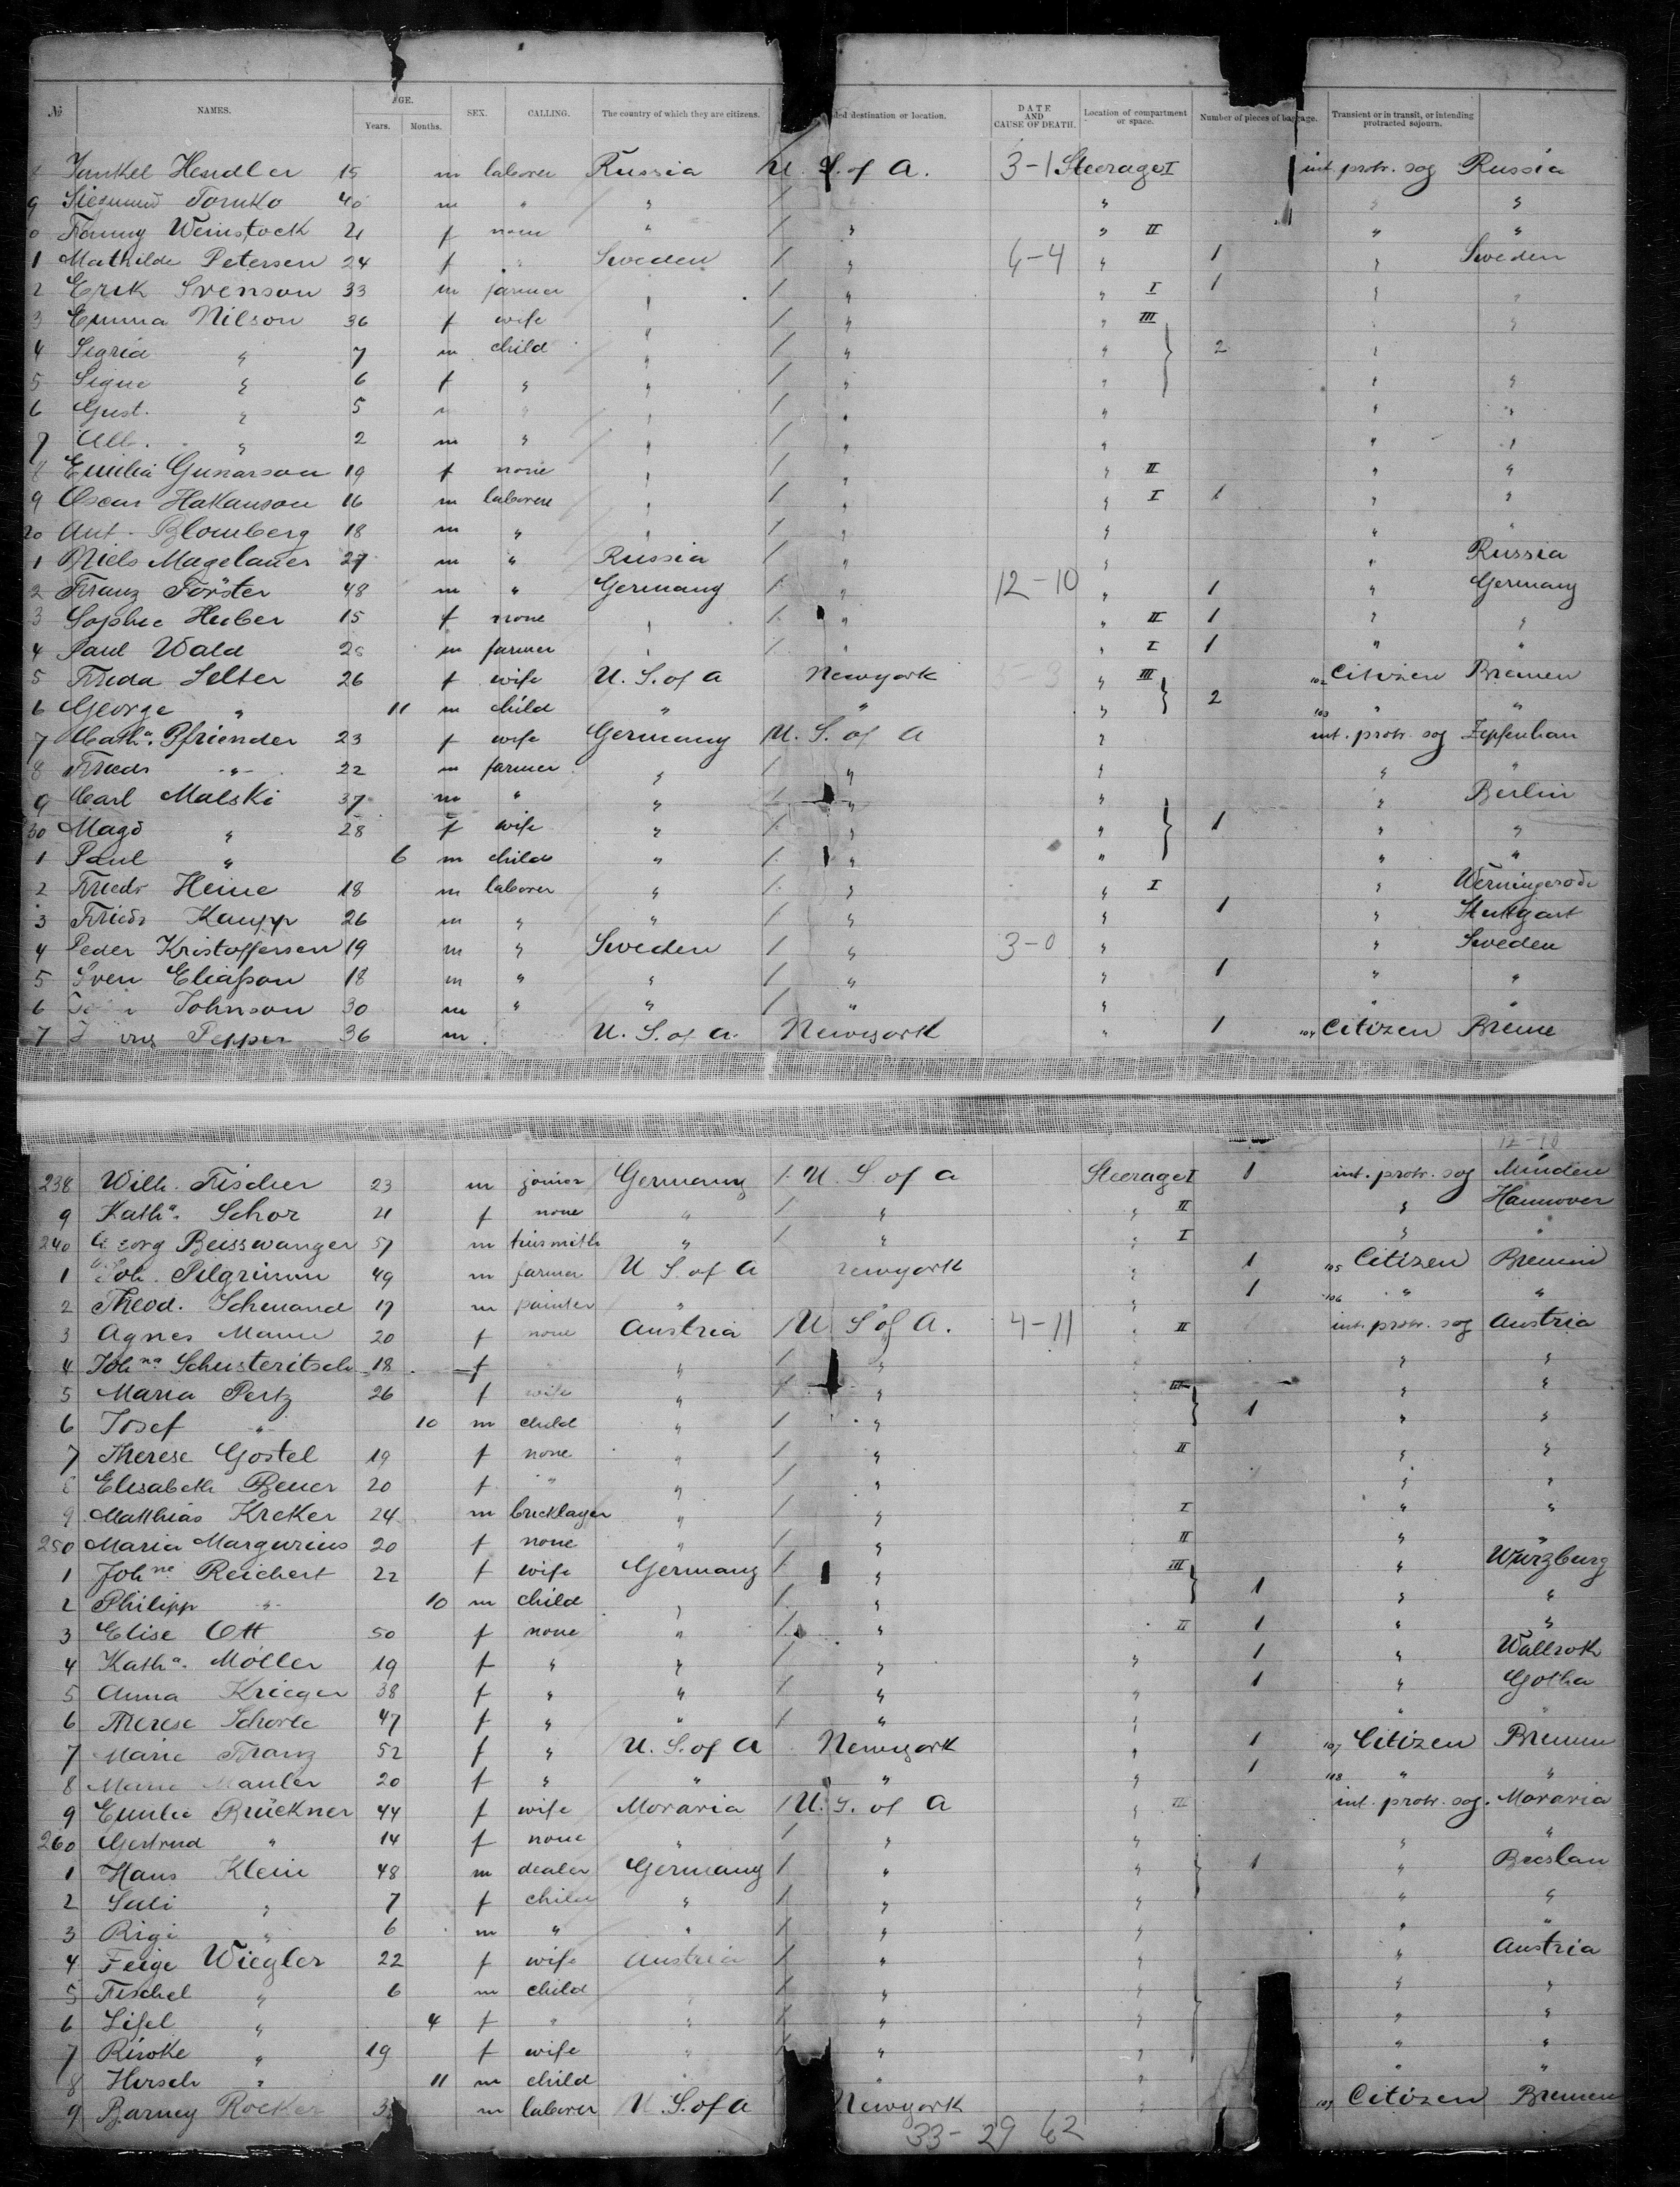 № NAMES. AGE. Years. Months. SEX. CALLING. The country of which they are citizens. ded destination or location. DATE AND CAUSE OF DEATH. Location of compartment or space. Number of pieces of baggage. Transient or in transit, or intending protracted sojourn.
Hendler 15 m laborer Russia U. S. of A. 3-1 Steerage I int. protr. soj Russia
9 Siegmund Tornko 40 m " " / " " " "
0 Fanny Weinstock 21 f none " / " " II " "
1 Mathilde Petersen 24 f " Sweden / " 4-4 " 1 " Sweden
2 Erik Svenson 33 m farmer " / " " I 1 " "
3 Emma Nilson 36 f wife " / " " III " "
4 Sigrid " 7 m child " / " " 2 "
5 Signe " 6 f " " / " " " "
6 Gust. " 5 m " " / " " " "
7 Alb. " 2 m " " / " " " "
8 Emilia Gunarson 19 f none " / " " II " "
9 Oscar Hakanson 16 m laborer " / " " I 1 " "
20 Ant. Blomberg 18 m " " / " " " "
1 Niels Magelaner 27 m " Russia / " " " Russia
2 Franz Förster 48 m " Germany / " 12-10 " 1 " Germany
3 Sophie Huber 15 f none " / " " II 1 " "
4 Paul Wald m farmer " / " " I 1 " "
5 Frieda Selter 26 f wife U. S. of A Newyork " III 102 Citizen Bremen
6 George " 11 m child " " " 2 103 " "
7 Catha. Pfriender 23 f wife Germany U. S. of A " int. protr. soj Zepfenhan
8 Friedr " 22 m farmer " / " " " "
9 Carl Malski 37 m " " / " " " Berlin
30 Magd " 28 f wife " / " " 1 " "
1 Paul " 6 m child " / " " " "
2 Friedr Heine 18 m laborer " / " " I " Werningerode
3 Friedr Kaupp 26 m " " / " " 1 " Stuttgart
4 Peder Kristoffersen 19 m " Sweden / " 3-0 " " Sweden
5 Sven Eliaßon 18 m " " / " " 1 " "
6 Johnson 30 m " " / " " " "
7 Pepper 36 m U. S. of A. Newyork " 1 104 Citizen Breme
12-10
238 Wilh. Fischer 23 m joiner Germany / U. S. of A Steerage I 1 int. protr. soj Minden
9 Katha. Schor 21 f none " / " " II " Hannover
240 Georg Beisswanger 57 m tinsmith " / " " I " "
1 Joh. Pilgrimm 49 m farmer U S. of A Newyork " 1 105 Citizen Bremen
2 Theod. Schmand 17 m painter " " " 1 106 " "
3 Agnes Mann 20 f none Austria / U S of A. 4-11 " II int. protr. soj Austria
4 Johna Schusteritsch 18 f " / " " " "
5 Maria Pertz 26 f wife " / " " III " "
6 Josef " 10 m child " / " " 1 " "
7 Therese Gostel 19 f none " / " " II " "
8 Elisabeth Beuer 20 f " " / " " "
9 Matthias Kreker 24 m bricklayer " / " I " "
250 Maria Margurius 20 f none " / " II " "
1 Johne Reichert 22 f wife Germany / " III " Würzburg
2 Philipp " 10 m child " / " 1 " "
3 Elise Ott 50 f none " / " II 1 " "
4 Katha. Möller 19 f " " / " " 1 " Wallroth
5 Anna Krieger 38 f " " / " " 1 " Gotha
6 Therese Schorle 47 f " " / " " " "
7 Marie Franz 52 f " U. S. of A Newyork " 1 107 Citizen Bremen
8 Marie Manler 20 f " " " " 1 108 " "
9 Emilie Brückner 44 f wife Moravia / U. S. of A " III int. protr. soj. Moravia
260 Gertrud " 14 f none " / " " " "
1 Hans Klein 48 m dealer Germany / " " 1 " Breslau
2 " 7 f child " / " " " "
3 " 6 m " " / " " " "
4 Feige Wiegler 22 f wife Austria / " " " Austria
5 Fischel " 6 m child " / " " " "
6 " 4 f " " / " " " "
7 Riwke " 19 f wife " / " " " "
8 Hersch " 11 m child " " " " "
9 Barney Rocker m laborer U. S. of A Newyork " 109 Citizen Bremen
33-29 62